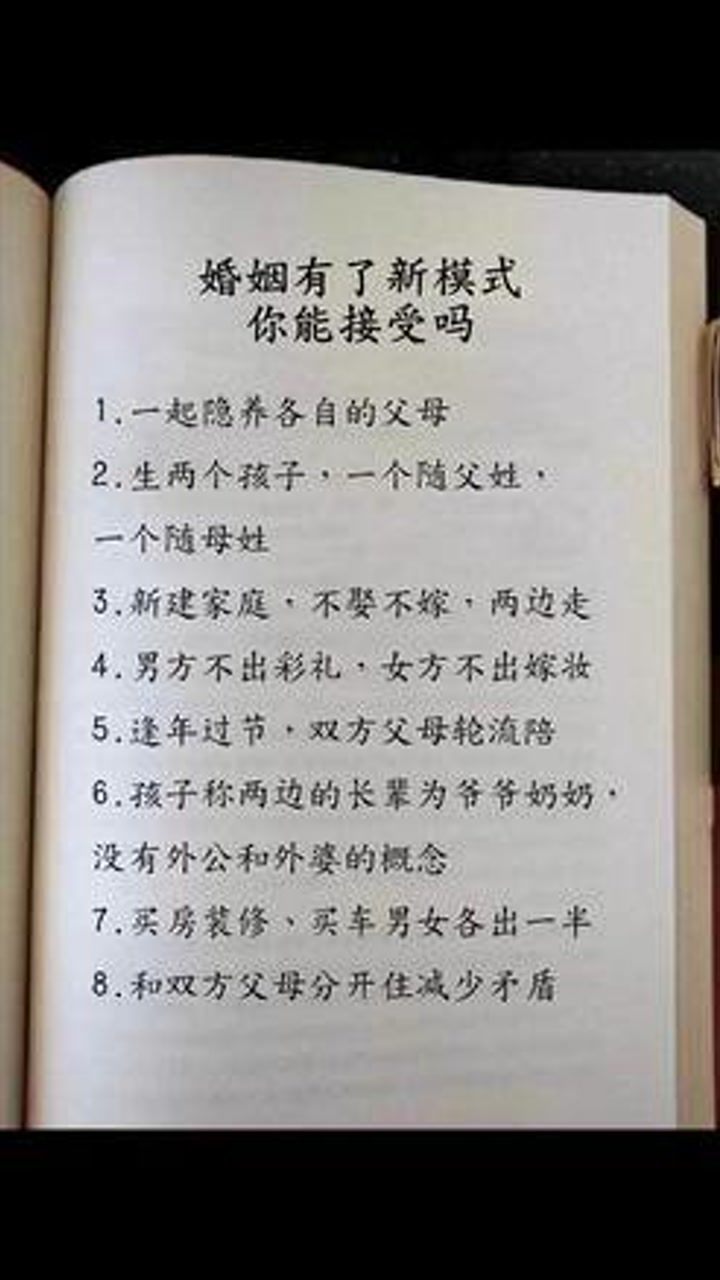 婚姻有了新模式
你能接受吗
1.一起隐养各自的父母
2.生两个孩子，一个随父姓，
一个随母姓
3.新建家庭，不娶不嫁，两边走
4.男方不出彩礼，女方不出嫁妆
5.逢年过节，双方父母轮流陪
6.孩子称两边的长辈为爷爷奶奶，
没有外公和外婆的概念
7.买房装修、买车男女各出一半
8.和双方父母分开住减少矛盾